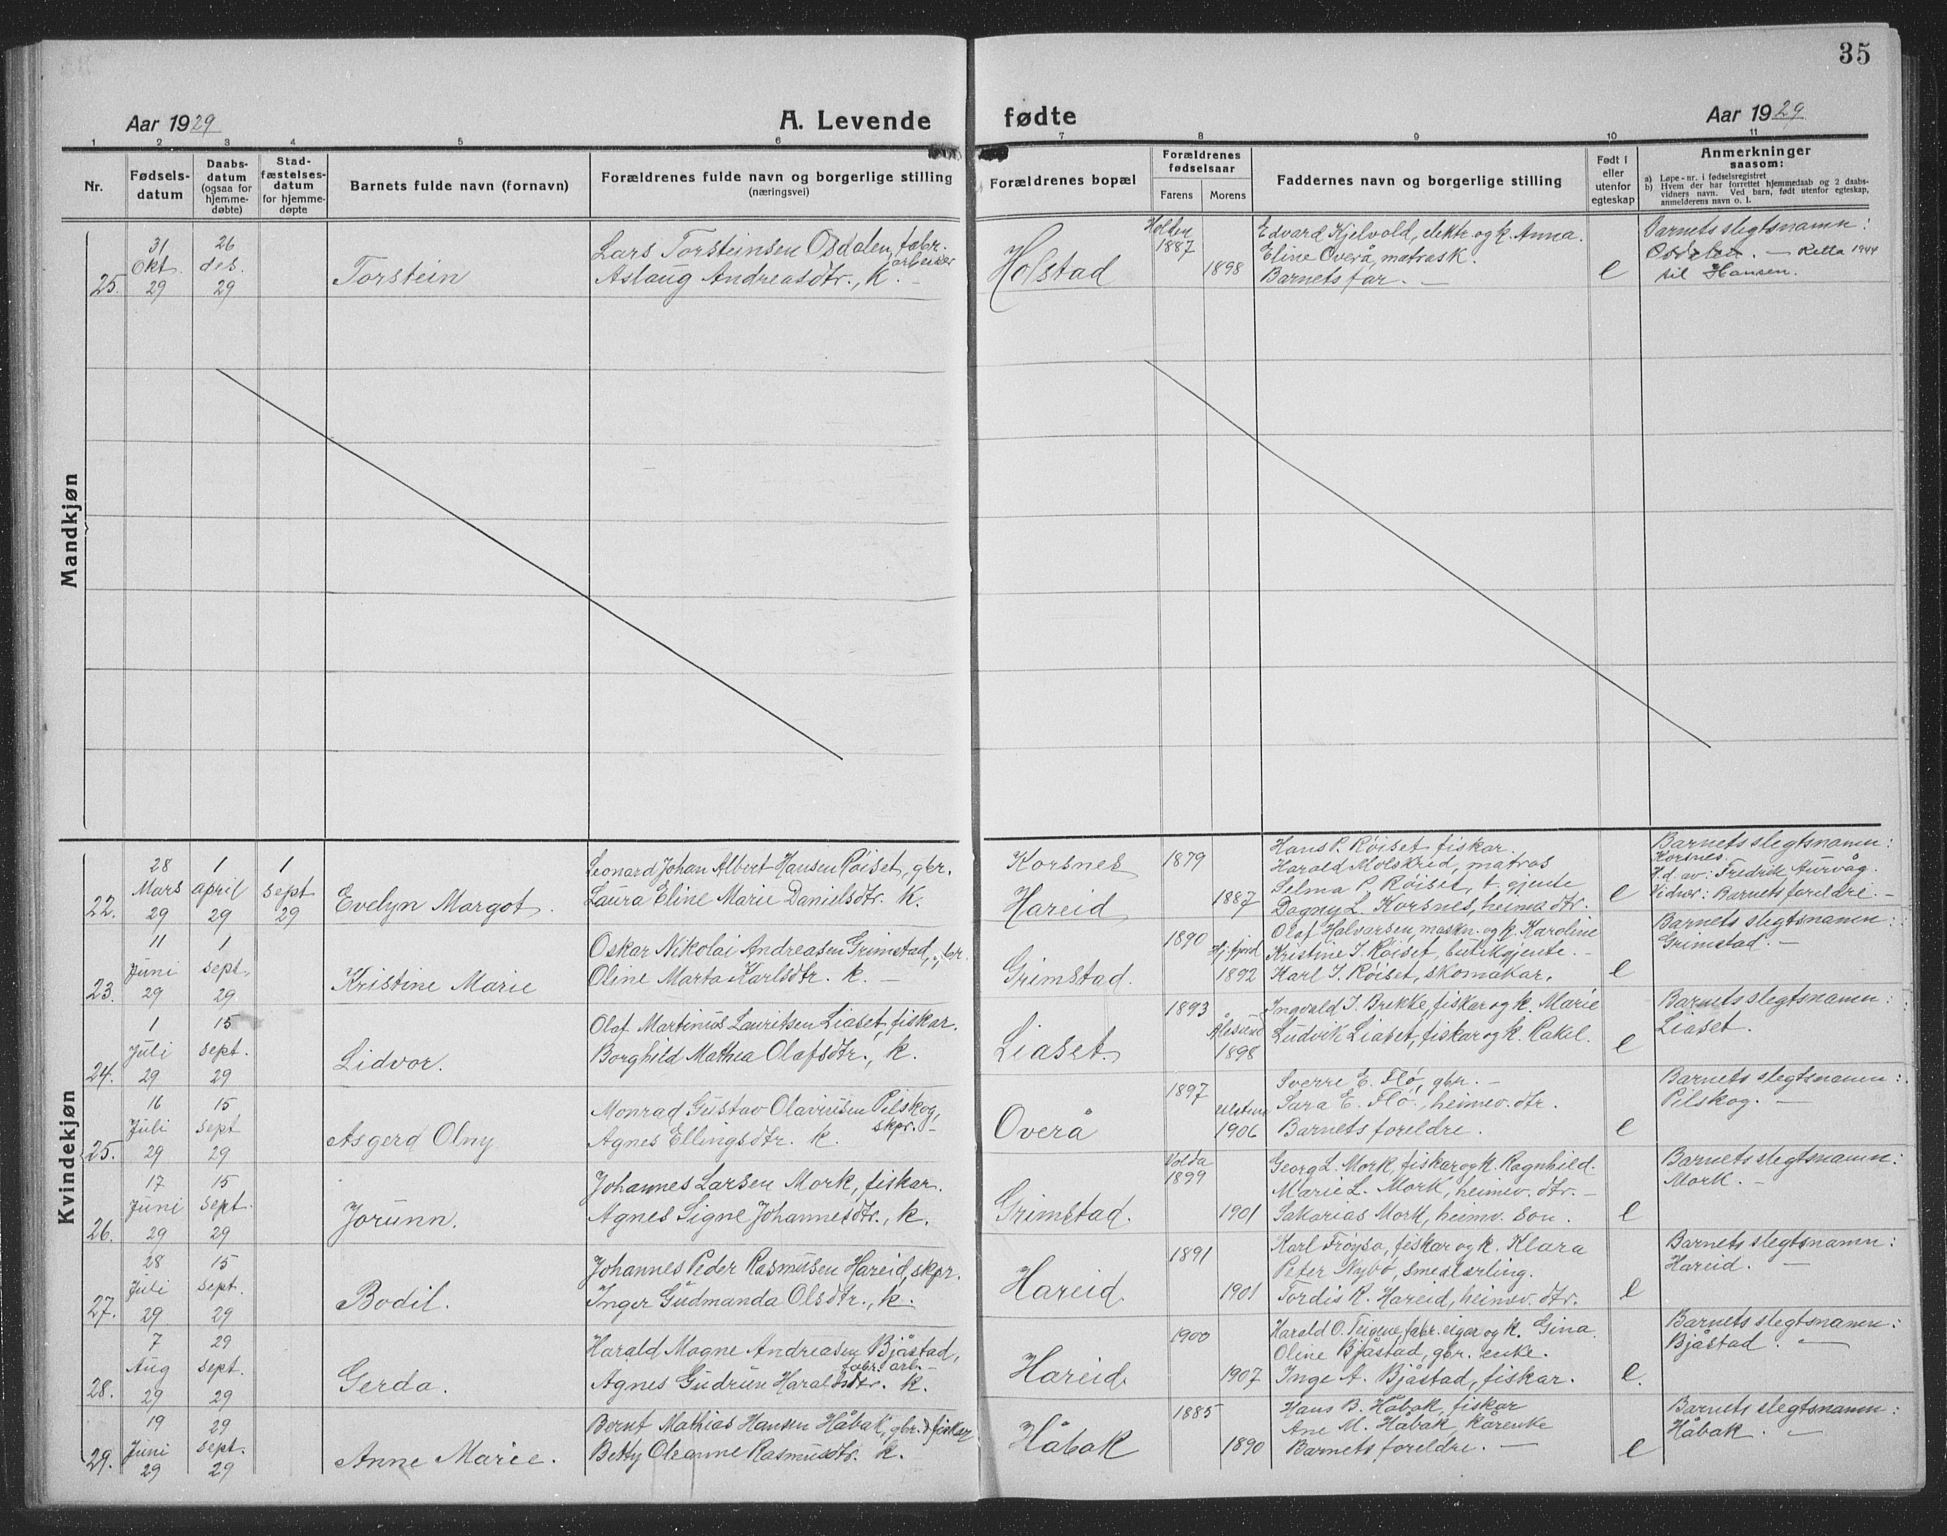 35
Aar 1929
A. Levende fødte
Aar 1929
1 2 3 4 5 6 7 8 9 10 11
Nr.
Fødsels-
datum
Daabs-
datum
(ogsaa for
hjemme-
døbte)
Stad-
fæstelses-
datum
for hjemme-
døpte
Barnets fulde navn (fornavn)
Forældrenes fulde navn og borgerlige stilling
(næringsvei)
Forældrenes bopæl
Forældrenes
fødselsaar
Farens Morens
Faddernes navn og borgerlige stilling
Født i
eller
utenfor
egteskap
Anmerkninger
saasom:
a) Løpe-nr. i fødselsregistret
b) Hvem der har forrettet hjemmedaab og 2 daabs-
vidners navn. Ved barn, født utenfor egteskap,
anmelderens navn o. l.
Mandkjøn
25.
31
Okt.
29
26
des.
29
Torstein
Lars Torsteinsen Osdalen, fabr.
arbeider
Aslaug Andreasdtr., k. –
Holstad
Holden
1887
1898
Edvard Kjelvold, elektr. og k. Anna.
Eline Overå, matrosk.
Barnets far. –
e
Barnets slegtsnamn:
Osdalen. – Retta 1944
til Hansen.
Kvindekjøn
22.
28
Mars
29
1
April
29
1
sept
29
Evelyn Margot.
Leonard Johan Albert Hansen Røiset, gbr.
Laura Eline Marie Danielsdtr. k.
Korsnes
Hareid
1879
1887
Hans P. Røiset, fiskar.
Harald Molskred, matros
Selma P. Røiset, t. gjente
Dagny L. Korsnes, heimev. dtr.
e
Barnets slegtsnamn:
Korsnes.
H.d. av: Fredrik Aurvåg.
Vidner: Barnets foreldre. –
23.
11
Juni
29
1
sept.
29
Kristine Marie
Oskar Nikolai Andreasen Grimstad, gbr.
Oline Marta Karlsdtr. k. –
Grimstad.
1890
Hj.fjord
1892
Olaf Halvarsen, maskn. og k. Karoline
Kristine J. Røiset, butikgjente. –
Karl J. Røiset, skomakar.
e
Barnets slegtsnamn:
Grimstad. –
24.
1
Juli
29
15
sept.
29
Lidvor.
Olaf Martinus Lauritsen Liaset, fiskar.
Borghild Mathea Olafsdtr., k.
Liaset.
1893
Ålesund
1898
Ingvald J. Brekke, fiskar og k. Marie
Ludvik Liaset, fiskar og k. Rakel.
e
Barnets slegtsnamn:
Liaset.
25.
16
Juli
29
15
sept
29
Asgerd Olny
Monrad Gustav Olavinsen Pilskog,
skpr. –
Agnes Ellingsdtr. k.
Overå
1897
Ulstein
1906
Sverre E. Flø, gbr. –
Sara E. Flø, heimev. dtr.
Barnets foreldre.
e
Barnets slegtsnamn:
Pilskog. –
26.
17
Juni
29
15
sept.
29
Jorunn.
Johannes Larsen Mork, fiskar.
Agnes Signe Johannesdtr., k.
Grimstad.
Volda
1899
1901
Georg L. Mork, fiskar og k. Ragnhild.
Marie L. Mork, heimev. dtr. –
Sakarias Mork, heimv. son.
e
Barnets slegtsnamn:
Mork. –
27.
28
Juli
29
15
sept.
29
Bodil.
Johannes Peder Rasmusen Hareid, skpr.
Inger Gudmanda Olsdtr., k.
Hareid.
1891
1901
Karl Frøysa, fiskar og k. Klara
Peter Nybø, smedlærling.
Tordis R. Hareid, heimev. dtr.
e
Barnets slegtsnamn:
Hareid. –
28.
7
Aug
29
29
sept.
29
Gerda.
Harald Magne Andreasen Bjåstad,
fabr. arb. –
Agnes Gudrun Haraldsdtr. k.
Hareid.
1900
1907
Harald O. Teigene, fabr. eigar og k. Gina.
Oline Bjåstad, gbr. enke.
Inge A. Bjåstad, fiskar.
e.
Barnets slegtsnamn:
Bjåstad. –
29.
19
Juni
29
29
sept.
29
Anne Marie.
Bernt Mathias Hansen Håbak, gbr. & fiskar
Betty Oleanne Rasmusdtr. k.
Håbak
1885
1890
Hans B. Håbak, fiskar
Ane M. Håbak, kårenke
Barnets foreldre. –
e
Barnets slegtsnamn:
Håbak. –